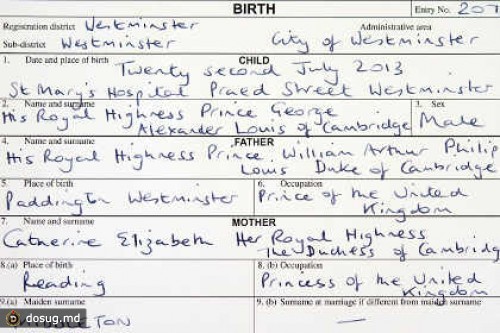 BIRTH
Entry No. 207
Registration district Westminster
Administrative area
Sub-district Westminster
City of Westminster
1. Date and place of birth
CHILD
Twenty second July 2013
St Mary's Hospital Praed Street Westminster
2. Name and surname
3. Sex
His Royal Highness Prince George
Alexander Louis of Cambridge
Male
4. Name and surname
FATHER
His Royal Highness Prince William Arthur Philip
Louis Duke of Cambridge
5. Place of birth
6. Occupation
Paddington Westminster
Prince of the United
Kingdom
7. Name and surname
MOTHER
Catherine Elizabeth Her Royal Highness
The Duchess of Cambridg
8.(a) Place of birth
8. (b) Occupation
Reading
Princess of the United
Kingdom
9.(a) Maiden surname
9. (b) Surname at marriage if different from maiden surname
dosug.md